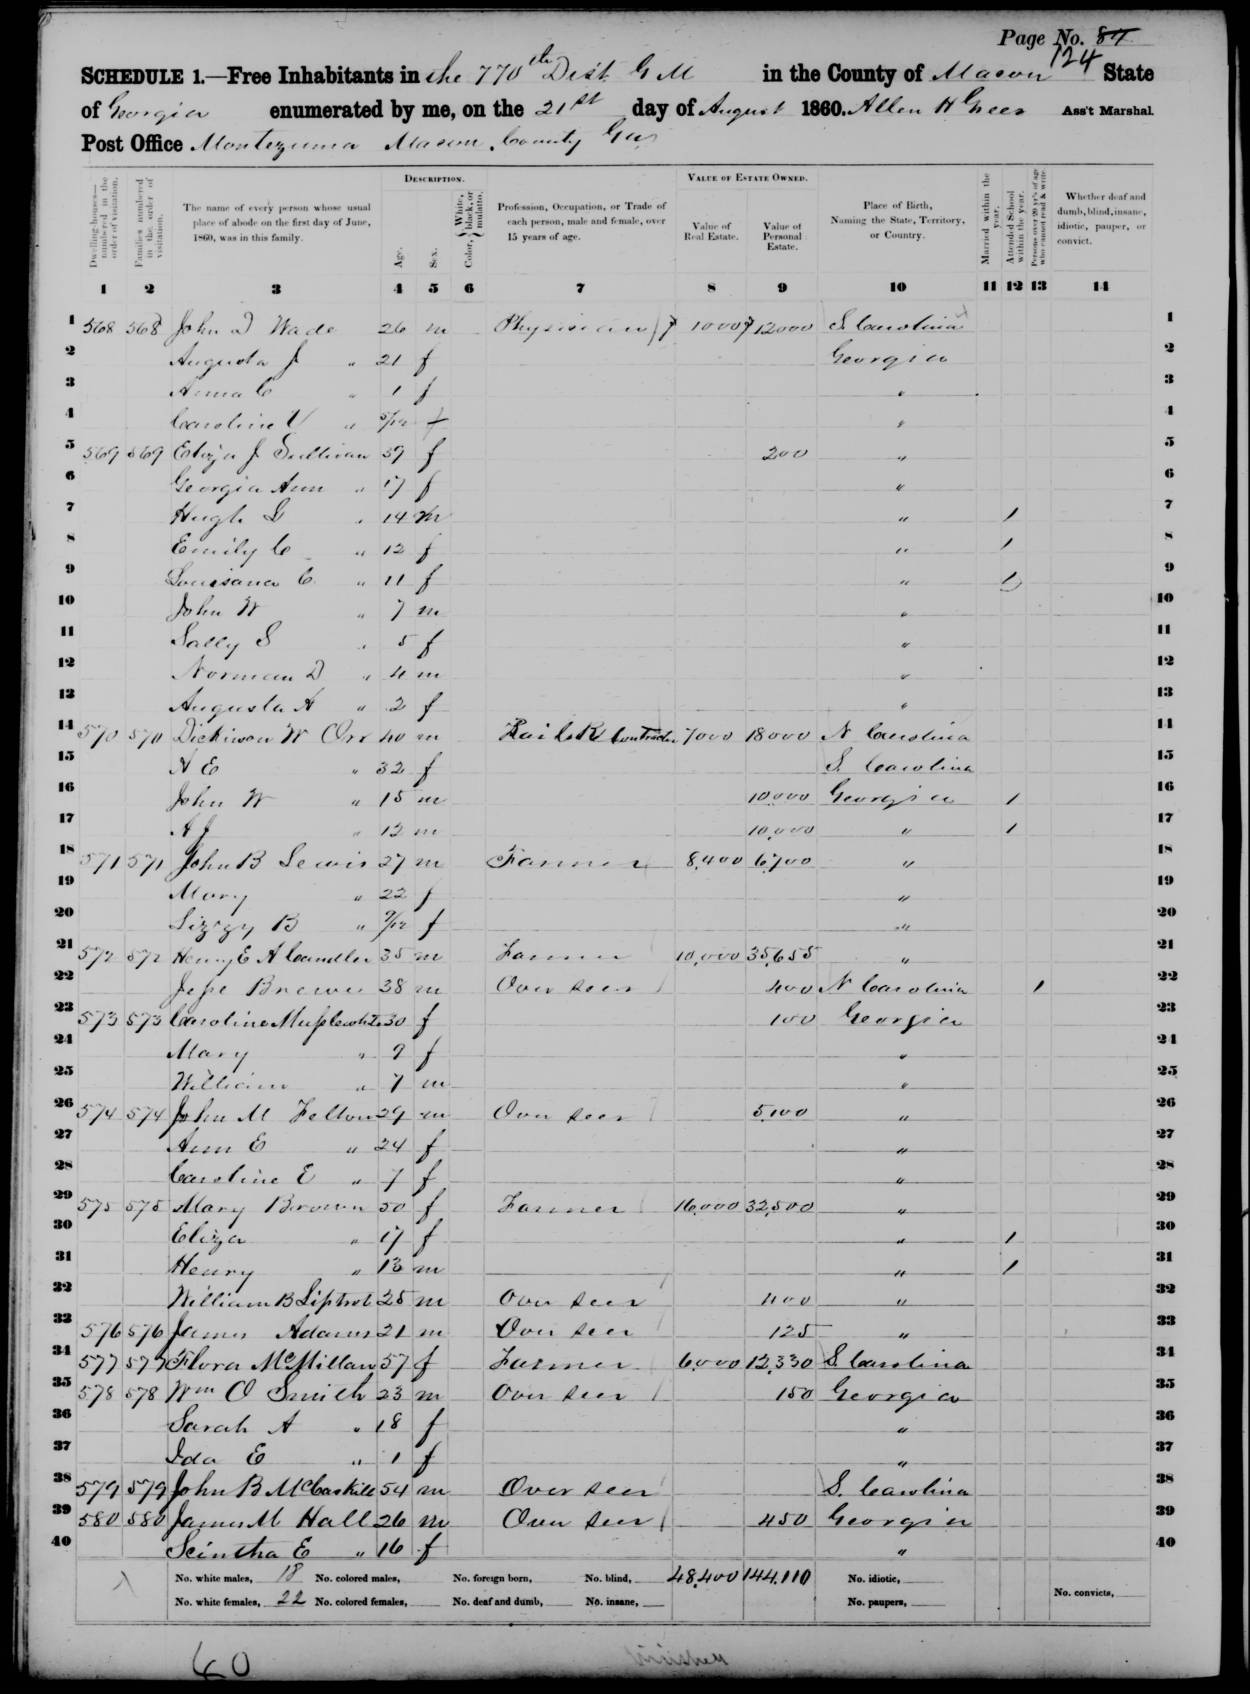 Page No. 87
124
SCHEDULE 1.—Free Inhabitants in the 770th Dist G M in the County of Macon State
of Georgia enumerated by me, on the 21st day of August 1860. Allen H Greer Ass't Marshal.
Post Office Montezuma Macon County Ga
DESCRIPTION. VALUE OF ESTATE OWNED.
Dwelling-houses—numbered in the order of visitation. Families numbered in the order of visitation. The name of every person whose usual place of abode on the first day of June, 1860, was in this family. Age. Sex. Color, { White, black, or mulatto. Profession, Occupation, or Trade of each person, male and female, over 15 years of age. Value of Real Estate. Value of Personal Estate. Place of Birth, Naming the State, Territory, or Country. Married within the year. Attended School within the year. Persons over 20 y'rs of age who cannot read & write. Whether deaf and dumb, blind, insane, idiotic, pauper, or convict.
1 2 3 4 5 6 7 8 9 10 11 12 13 14
1 568 568 John D Wade 26 m Physician 1000 12000 S. Carolina 1
2 Augusta J " 21 f Georgia 2
3 Anna C " 1 f " 3
4 Caroline V " 5/12 f " 4
5 569 569 Eliza J Sullivan 39 f 200 " 5
6 Georgia Ann " 17 f " 6
7 Hugh G " 14 m " 1 7
8 Emily C " 12 f " 1 8
9 Louisana C " 11 f " 1 9
10 John W " 7 m " 10
11 Sally S " 5 f " 11
12 Norman D " 4 m " 12
13 Augusta A " 2 f " 13
14 570 570 Dickinson W Orr 40 m Rail R Contractor 7000 18000 N Carolina 14
15 A E " 32 f S. Carolina 15
16 John W " 15 m 10,000 Georgia 1 16
17 A J " 12 m 10,000 " 1 17
18 571 571 John B Lewis 27 m Farmer 8,400 6,700 " 18
19 Mary " 22 f " 19
20 Lizzy B " 9/12 f " 20
21 572 572 Henry E A Candler 35 m Farmer 10,000 35,655 " 21
22 Jesse Brewer 38 m Over seer 400 N Carolina 1 22
23 573 573 Caroline Musslewhite 30 f 100 Georgia 23
24 Mary " 9 f " 24
25 William " 7 m " 25
26 574 574 John M Felton 29 m Over seer 5,100 " 26
27 Ann E " 24 f " 27
28 Caroline E " 7 f " 28
29 575 575 Mary Brown 50 f Farmer 16,000 32,500 " 29
30 Eliza " 17 f " 1 30
31 Henry " 13 m " 1 31
32 William B Liptrot 25 m Over seer 400 " 32
33 576 576 James Adams 21 m Over seer 125 " 33
34 577 577 Flora McMillan 57 f Farmer 6,000 12,330 S. Carolina 34
35 578 578 Wm O Smith 23 m Over seer 150 Georgia 35
36 Sarah A " 18 f " 36
37 Ida E " 1 f " 37
38 579 579 John B McCaskill 54 m Over seer S. Carolina 38
39 580 580 James M Hall 26 m Over seer 450 Georgia 39
40 Scintha E " 16 f " 40
No. white males, 18 No. colored males, No. foreign born, No. blind, 48,400 144,110 No. idiotic,
No. white females, 22 No. colored females, No. deaf and dumb, No. insane, No. paupers, No. convicts,
60